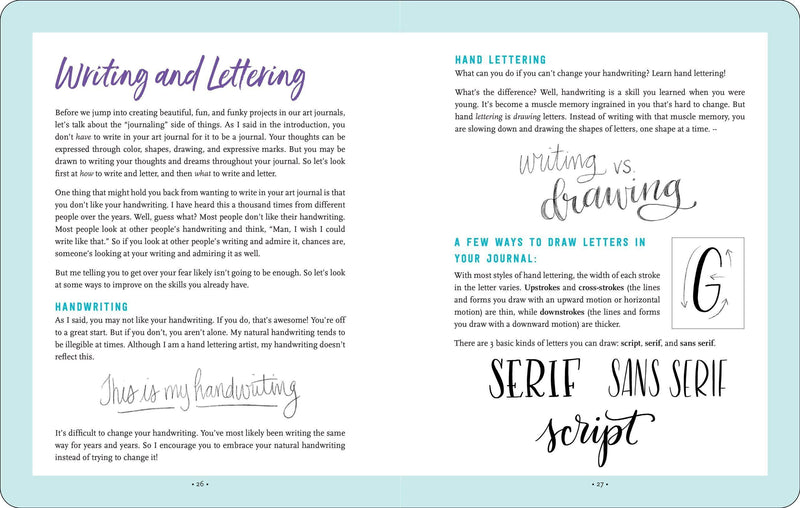 Writing and Lettering
Before we jump into creating beautiful, fun, and funky projects in our art journals,
let's talk about the “journaling” side of things. As I said in the introduction, you
don't have to write in your art journal for it to be a journal. Your thoughts can be
expressed through color, shapes, drawing, and expressive marks. But you may be
drawn to writing your thoughts and dreams throughout your journal. So let's look
first at how to write and letter, and then what to write and letter.
One thing that might hold you back from wanting to write in your art journal is that
you don't like your handwriting. I have heard this a thousand times from different
people over the years. Well, guess what? Most people don't like their handwriting.
Most people look at other people's handwriting and think, “Man, I wish I could
write like that.” So if you look at other people's writing and admire it, chances are,
someone's looking at your writing and admiring it as well.
But me telling you to get over your fear likely isn't going to be enough. So let's look
at some ways to improve on the skills you already have.
HANDWRITING
As I said, you may not like your handwriting. If you do, that's awesome! You're off
to a great start. But if you don't, you aren't alone. My natural handwriting tends to
be illegible at times. Although I am a hand lettering artist, my handwriting doesn't
reflect this.
This is my handwriting
It's difficult to change your handwriting. You've most likely been writing the same
way for years and years. So I encourage you to embrace your natural handwriting
instead of trying to change it!
• 26 •
HAND LETTERING
What can you do if you can't change your handwriting? Learn hand lettering!
What's the difference? Well, handwriting is a skill you learned when you were
young. It's become a muscle memory ingrained in you that's hard to change. But
hand lettering is drawing letters. Instead of writing with that muscle memory, you
are slowing down and drawing the shapes of letters, one shape at a time. –
writing vs.
drawing
A FEW WAYS TO DRAW LETTERS IN
YOUR JOURNAL:
With most styles of hand lettering, the width of each stroke
in the letter varies. Upstrokes and cross-strokes (the lines
and forms you draw with an upward motion or horizontal
motion) are thin, while downstrokes (the lines and forms
you draw with a downward motion) are thicker.
G
There are 3 basic kinds of letters you can draw: script, serif, and sans serif.
SERIF SANS SERIF
script
• 27 •